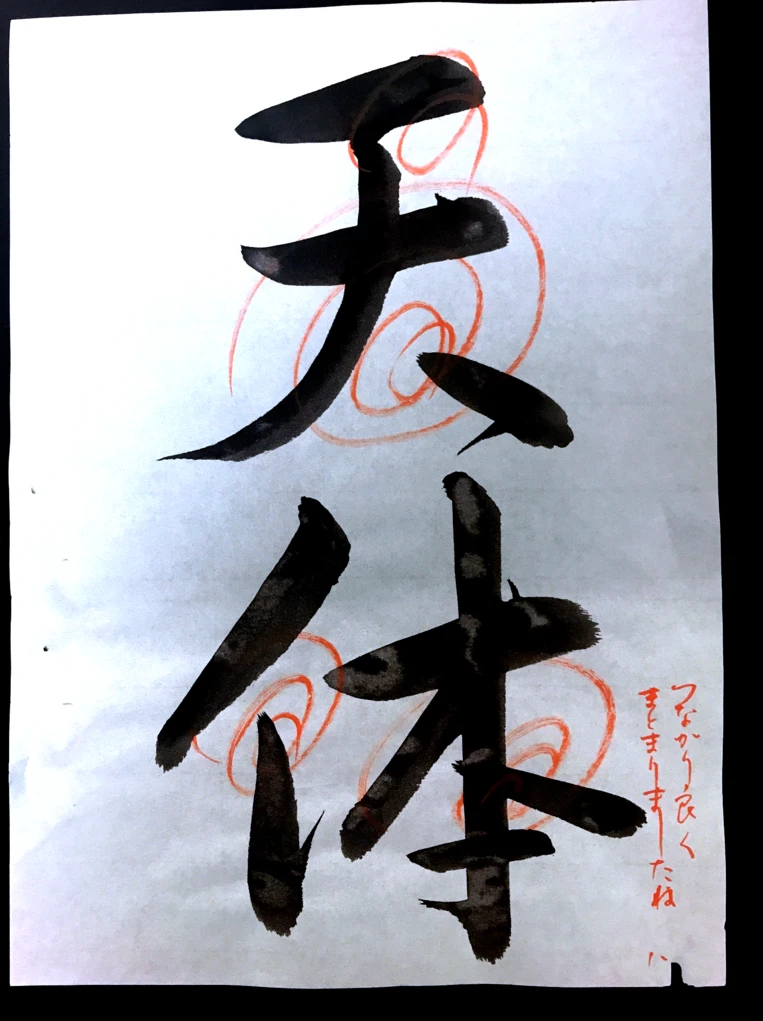 天体
つながり良く
まとまりましたね